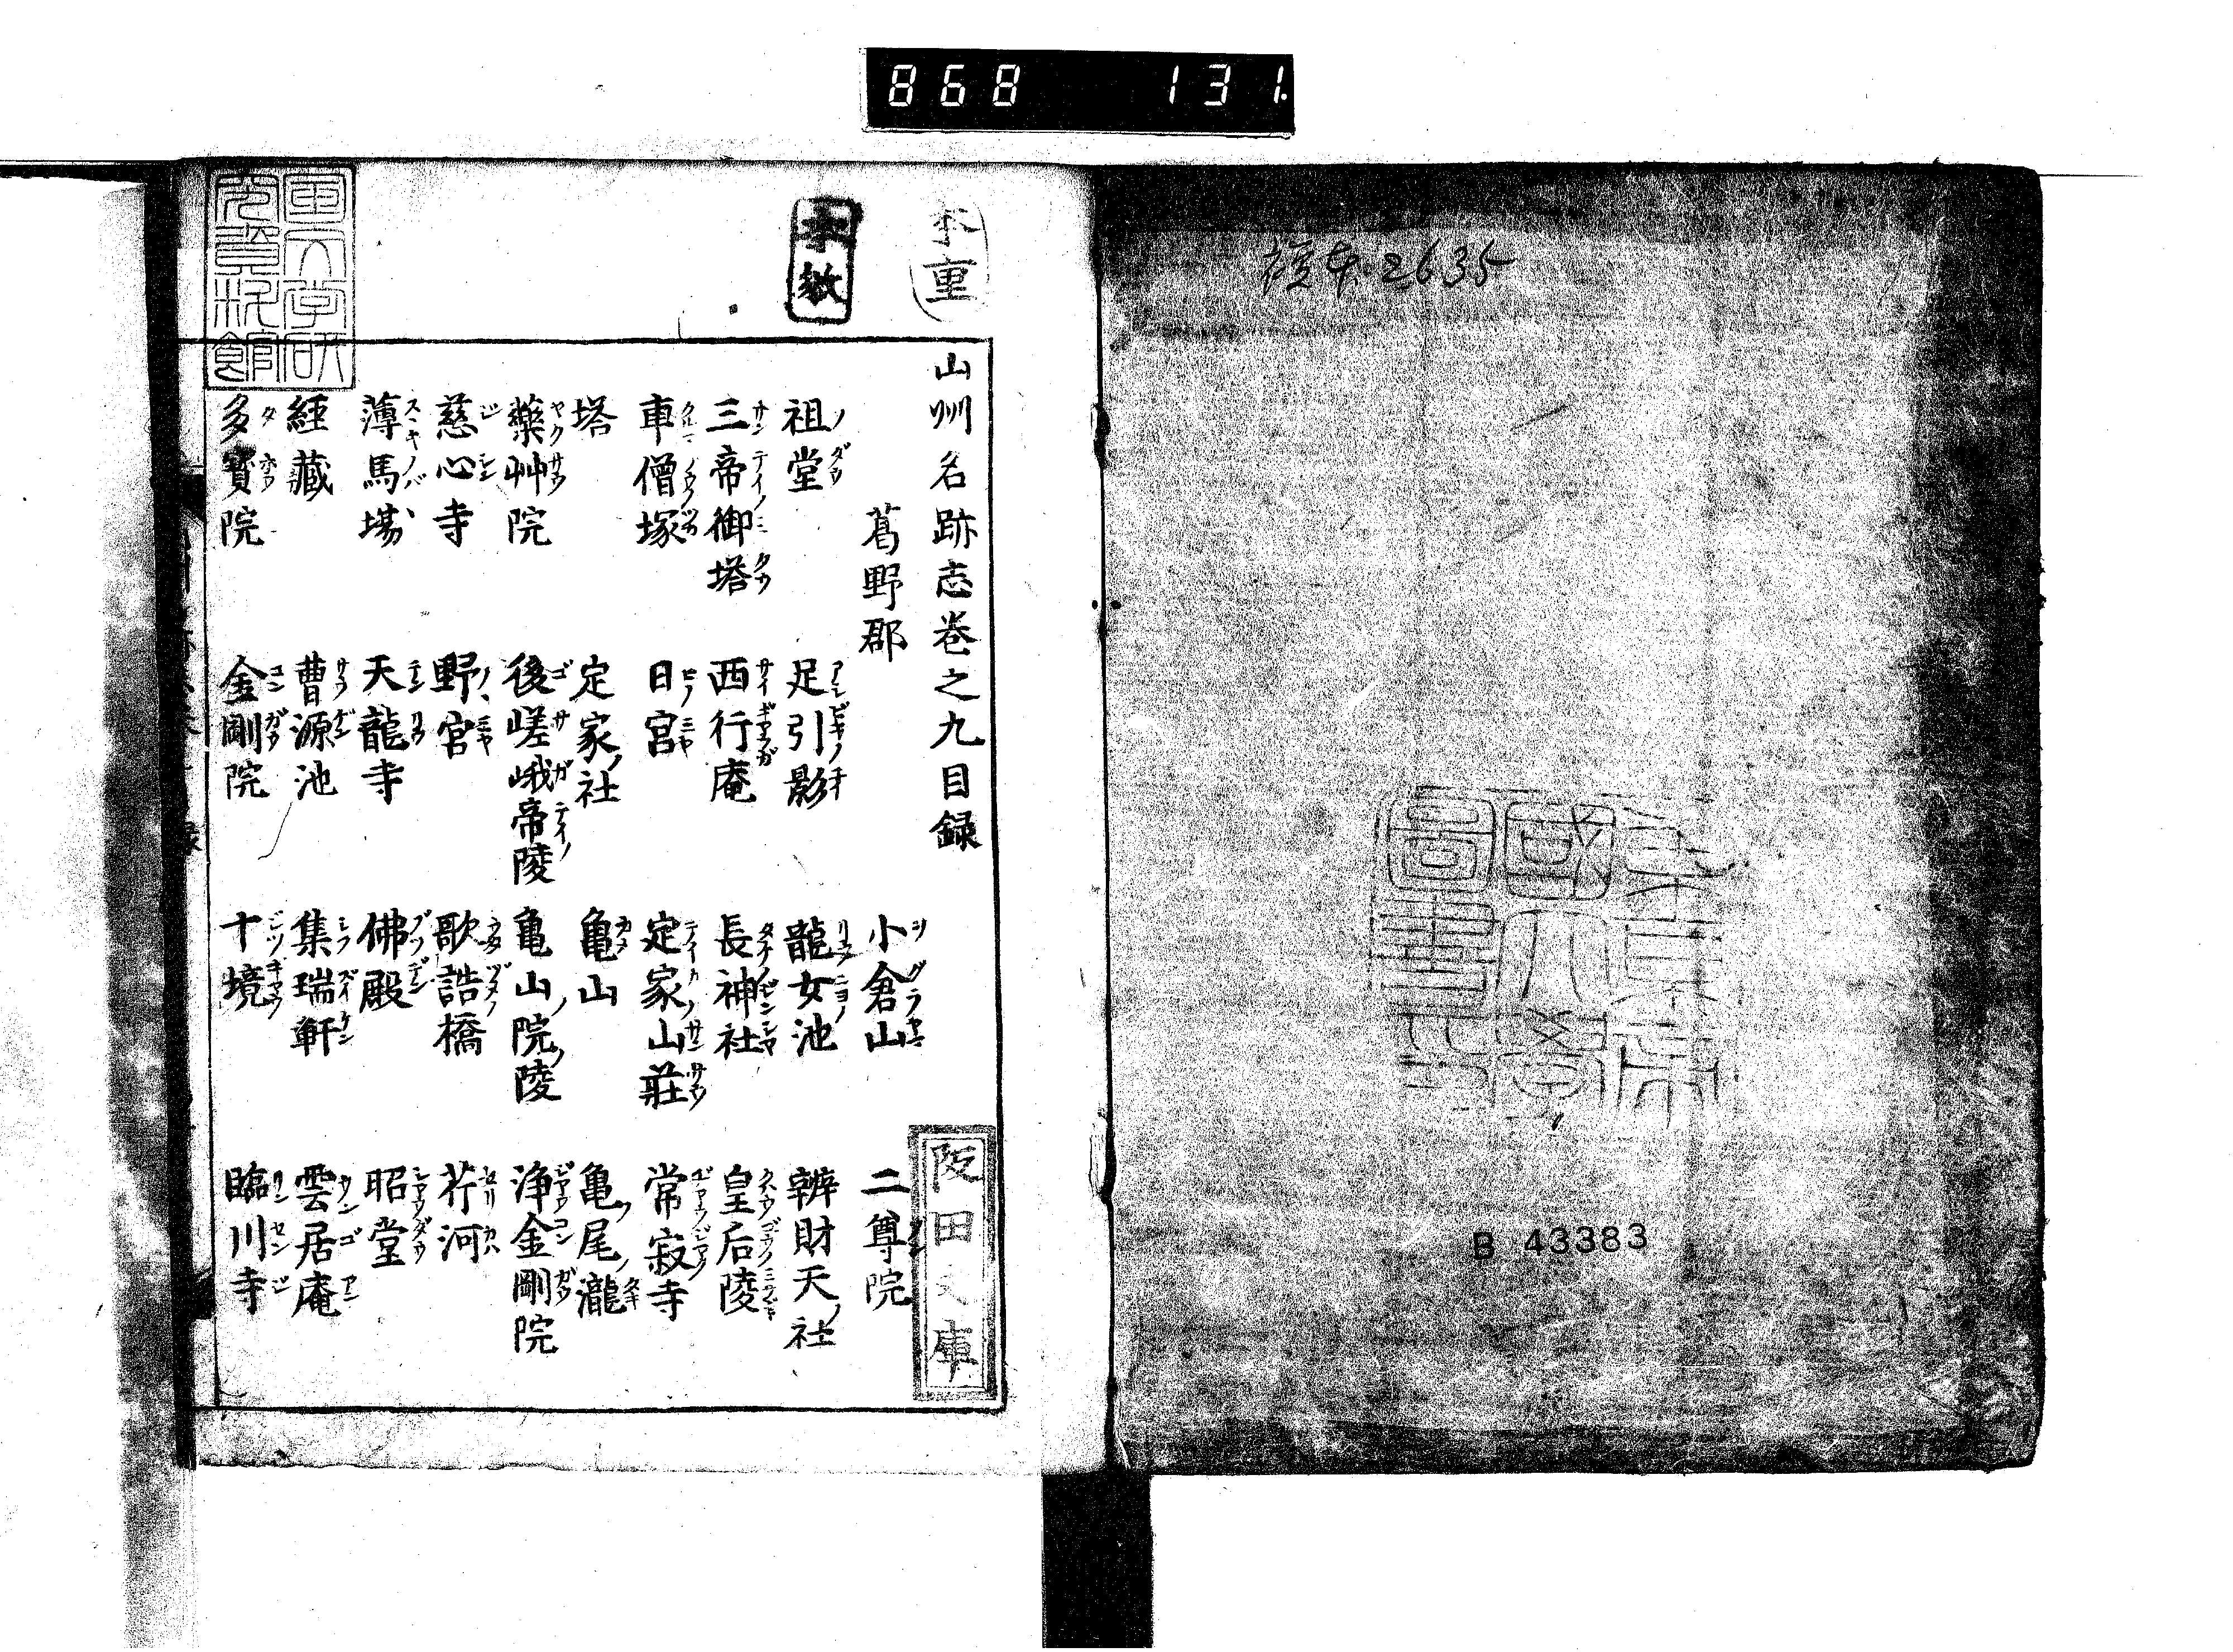 868 131
2635
B 43383
山州名跡志巻之九目録
葛野郡 小倉山 二尊院
祖堂 足引影 龍女池 辨財天ノ社
三帝御塔 西行庵 長神社 皇后陵
車僧塚 日宮 定家山莊 常寂寺
塔 定家ノ社 亀山 亀ノ尾ノ瀧
藥艸院 後嵯峨帝陵 亀山ノ院ノ陵 浄金剛院
慈心寺 野宮 歌詰橋 芹河
薄馬場 天龍寺 佛殿 昭堂
経藏 曹源池 集瑞軒 雲居庵
多寳院 金剛院 十境 臨川寺
阪田文庫